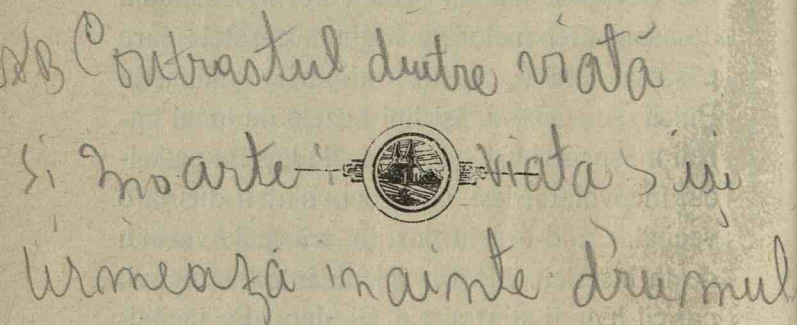 NB Contrastul dintre viată
și moarte: viata își
urmează inainte drumul